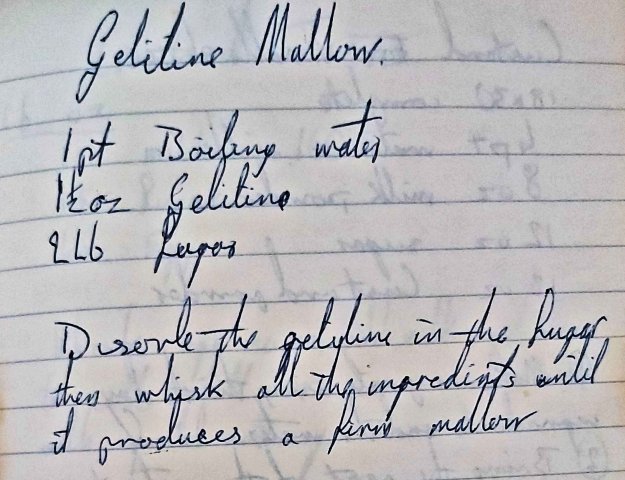 Gelitine Mallow.
1pt Boiling water
1½oz Gelitine
2Lb Sugar
Disovle the gelyline in the Sugar
then whisk all the ingredints until
it produces a firm mallow